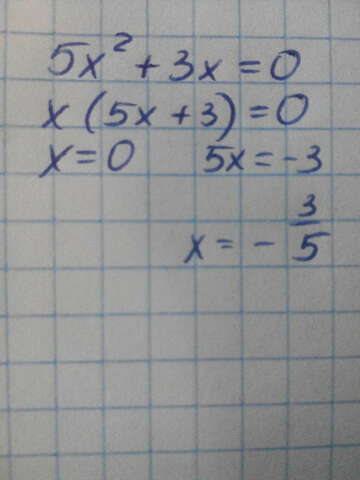 5x² + 3x = 0
x (5x + 3) = 0
x = 0 5x = -3
x = - 3/5